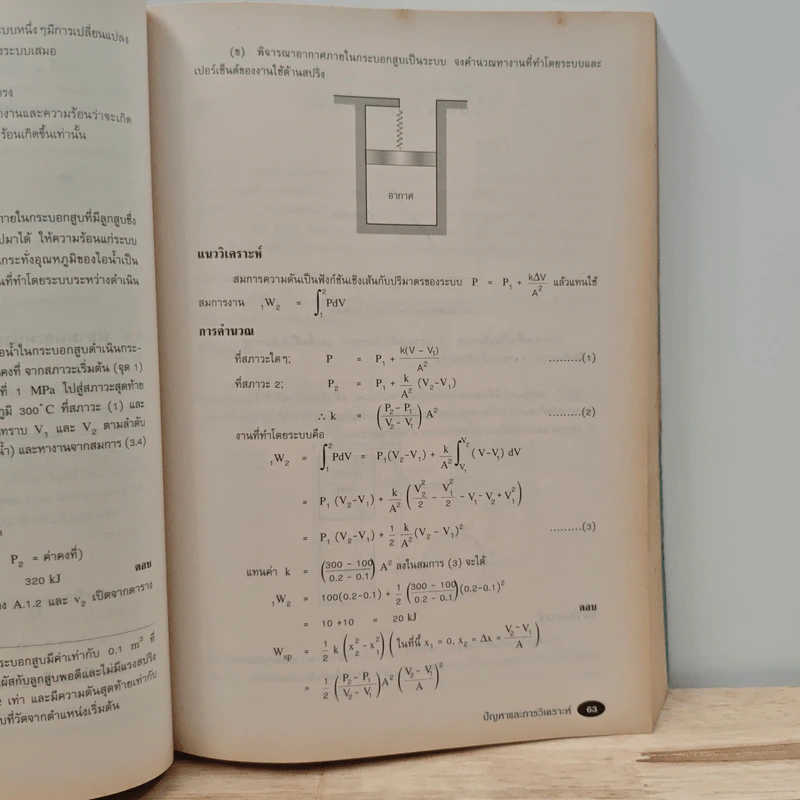 ะบบหนึ่ง ๆมีการเปลี่ยนแปลง
งระบบเสมอ
ตรง
านและความร้อนว่าจะเกิด
ร้อนเกิดขึ้นเท่านั้น
ภายในกระบอกสูบที่มีลูกสูบซึ่ง
ปมาได้ ให้ความร้อนแก่ระบบ
นกระทั่งอุณหภูมิของไอน้ำเป็น
นที่ทำโดยระบบระหว่างดำเนิน
อน้ำในกระบอกสูบดำเนินกระ-
คงที่ จากสภาวะเริ่มต้น (จุด 1)
ที่ 1 MPa ไปสู่สภาวะสุดท้าย
ภูมิ 300°C ที่สภาวะ (1) และ
ทราบ V₁ และ V₂ ตามลำดับ
น้ำ) และหางานจากสมการ (3.4)
P₂ = ค่าคงที่)
320 kJ ตอบ
ง A.1.2 และ v₂ เปิดจากตาราง
ระบอกสูบมีค่าเท่ากับ 0.1 m³ ที่
ผัสกับลูกสูบพอดีและไม่มีแรงสปริง
2 เท่า และมีความดันสุดท้ายเท่ากับ
บที่วัดจากตำแหน่งเริ่มต้น
(ข) พิจารณาอากาศภายในกระบอกสูบเป็นระบบ จงคำนวณหางานที่ทำโดยระบบและ
เปอร์เซ็นต์ของงานใช้ต้านสปริง
อากาศ
แนววิเคราะห์
สมการความดันเป็นฟังก์ชันเชิงเส้นกับปริมาตรของระบบ P = P₁ + kΔV/A² แล้วแทนใช้
สมการงาน ₁W₂ = ∫₁² PdV
การคำนวณ
ที่สภาวะใด ๆ; P = P₁ + k(V – V₁)/A² .........(1)
ที่สภาวะ 2; P₂ = P₁ + k/A² (V₂–V₁)
∴ k = (P₂ – P₁/V₂ – V₁) A² .........(2)
งานที่ทำโดยระบบคือ
₁W₂ = ∫₁² PdV = P₁(V₂–V₁) + k/A² ∫V₁V₂ (V–V₁) dV
= P₁ (V₂–V₁) + k/A² (V₂²/2 – V₁²/2 – V₁–V₂+V₁²)
= P₁ (V₂–V₁) + 1/2 k/A² (V₂ – V₁)² .........(3)
แทนค่า k = (300 – 100/0.2 – 0.1) A² ลงในสมการ (3) จะได้
₁W₂ = 100(0.2–0.1) + 1/2 (300 – 100/0.2 – 0.1)(0.2–0.1)²
= 10 +10 = 20 kJ ตอบ
Wsp = 1/2 k (x₂² – x₁²) (ในที่นี้ x₁ = 0, x₂ = Δx = V₂ – V₁/A)
= 1/2 (P₂ – P₁/V₂ – V₁) A² (V₂ – V₁/A)²
ปัญหาและการวิเคราะห์ 63